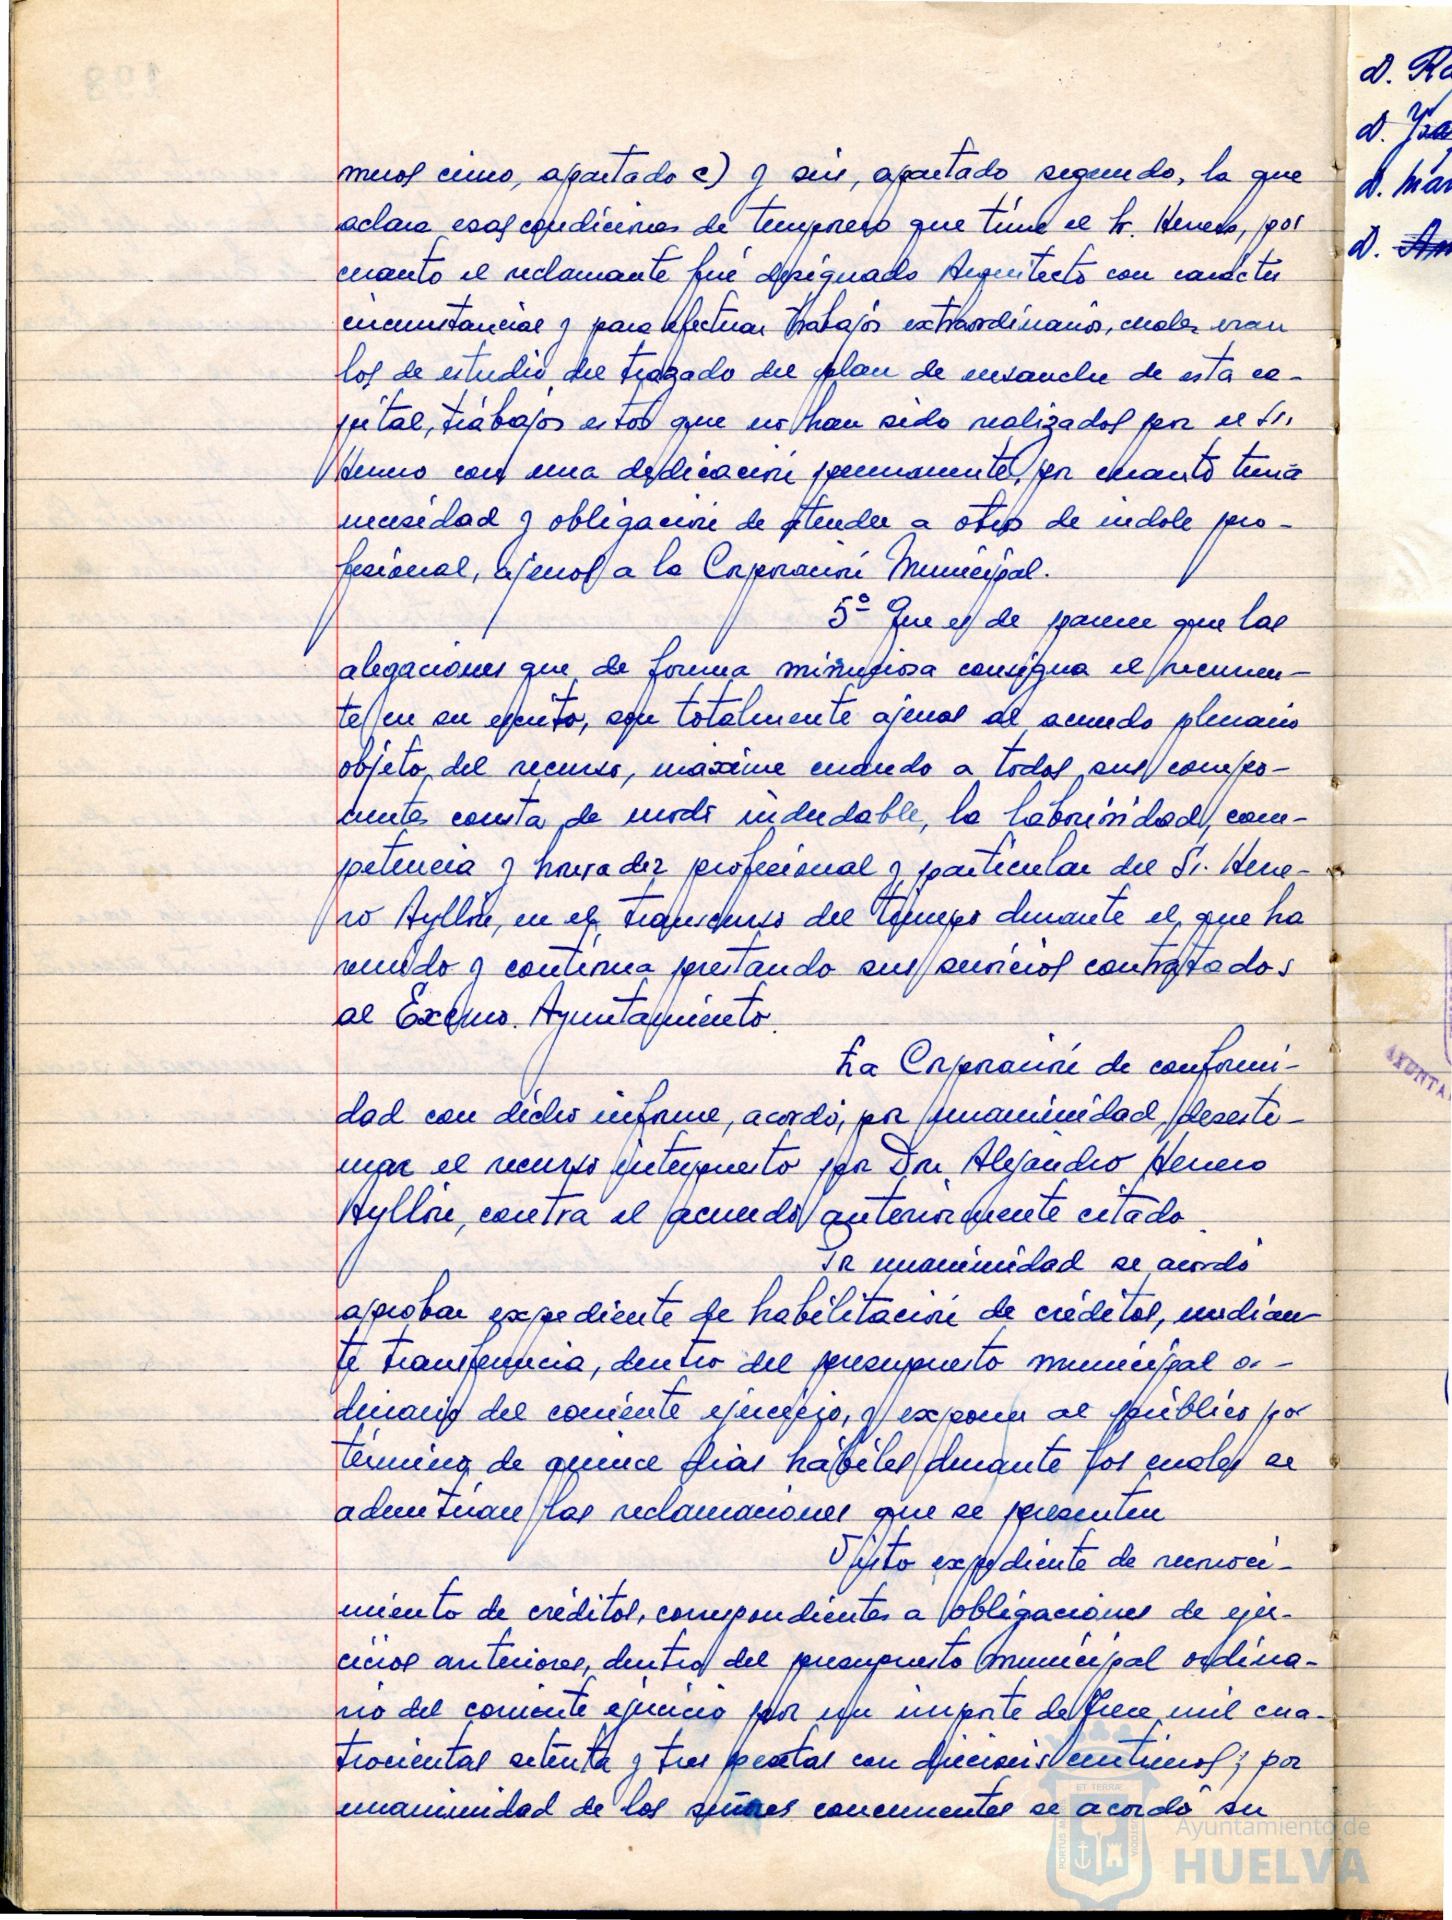 meros cinco, apartado c) y seis, apartado segundo, la que
aclara esas condiciones de temporero que tiene el Sr. Herrero, por
cuanto el reclamante fué designado Arquitecto con carácter
circunstancial y para efectuar trabajos extraordinarios, cuales eran
los de estudio del trazado del plan de ensanche de esta ca-
pital, trabajos estos que no han sido realizados por el Sr.
Herrero con una dedicación permanente, por cuanto tenía
necesidad y obligación de atender a otros de indole pro-
fesional, ajenos a la Corporación Municipal.
5º Que es de parecer que las
alegaciones que de forma minuciosa consigna el recurren-
te en su escrito, son totalmente ajenas al acuerdo plenario
objeto del recurso, máxime cuando a todos sus compo-
nentes consta de modo indudable, la laboriosidad, com-
petencia y honradez profesional y particular del Sr. Herre-
ro Ayllón, en el transcurso del tiempo durante el que ha
venido y continua prestando sus servicios contratados
al Excmo. Ayuntamiento.
La Corporación de conformi-
dad con dicho informe, acordó, por unanimidad, desesti-
mar el recurso interpuesto por Don Alejandro Herrero
Ayllón, contra el acuerdo anteriormente citado.
Por unanimidad se acordó
aprobar expediente de habilitación de créditos, median-
te transferencia, dentro del presupuesto municipal or-
dinario del corriente ejercicio, y exponer al público por
término de quince dias hábiles durante los cuales se
admitirian las reclamaciones que se presenten
Visto expediente de reconoci-
miento de créditos, correspondientes a obligaciones de ejer-
cicios anteriores, dentro del presupuesto municipal ordina-
rio del corriente ejercicio por un importe de trece mil cua-
trocientas setenta y tres pesetas con dieciseis centimos; por
unanimidad de los señores concurrentes se acordó su
D. Ra
D.
D. Mar
D. An
AYUNTA
ET TERRAE
PORTUS M
CUSTODIA
Ayuntamiento de
HUELVA